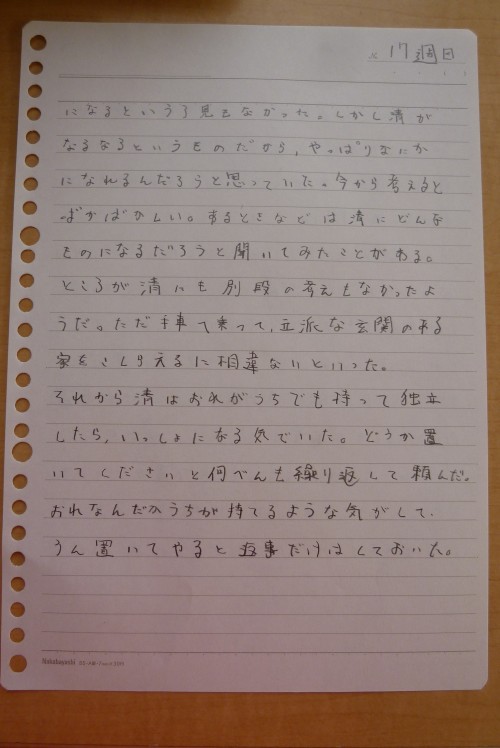 17週目
になるという了見もなかった。しかし清が
なるなるというものだから、やっぱりなにか
になれるんだろうと思っていた。今から考えると
ばかばかしい。するときなどは清にどんな
ものになるだろうと聞いてみたことがある。
ところが清にも別段の考えもなかったよ
うだ。ただ手車て乗って、立派な玄関のある
家をこしらえるに相違ないといった。
それから清はおれがうちでも持って独立
したら、いっしょになる気でいた。どうか置
いてくださいと何べんも繰り返して頼んだ。
おれなんだかうちが持てるような気がして、
うん置いてやると返事だけはしておいた。